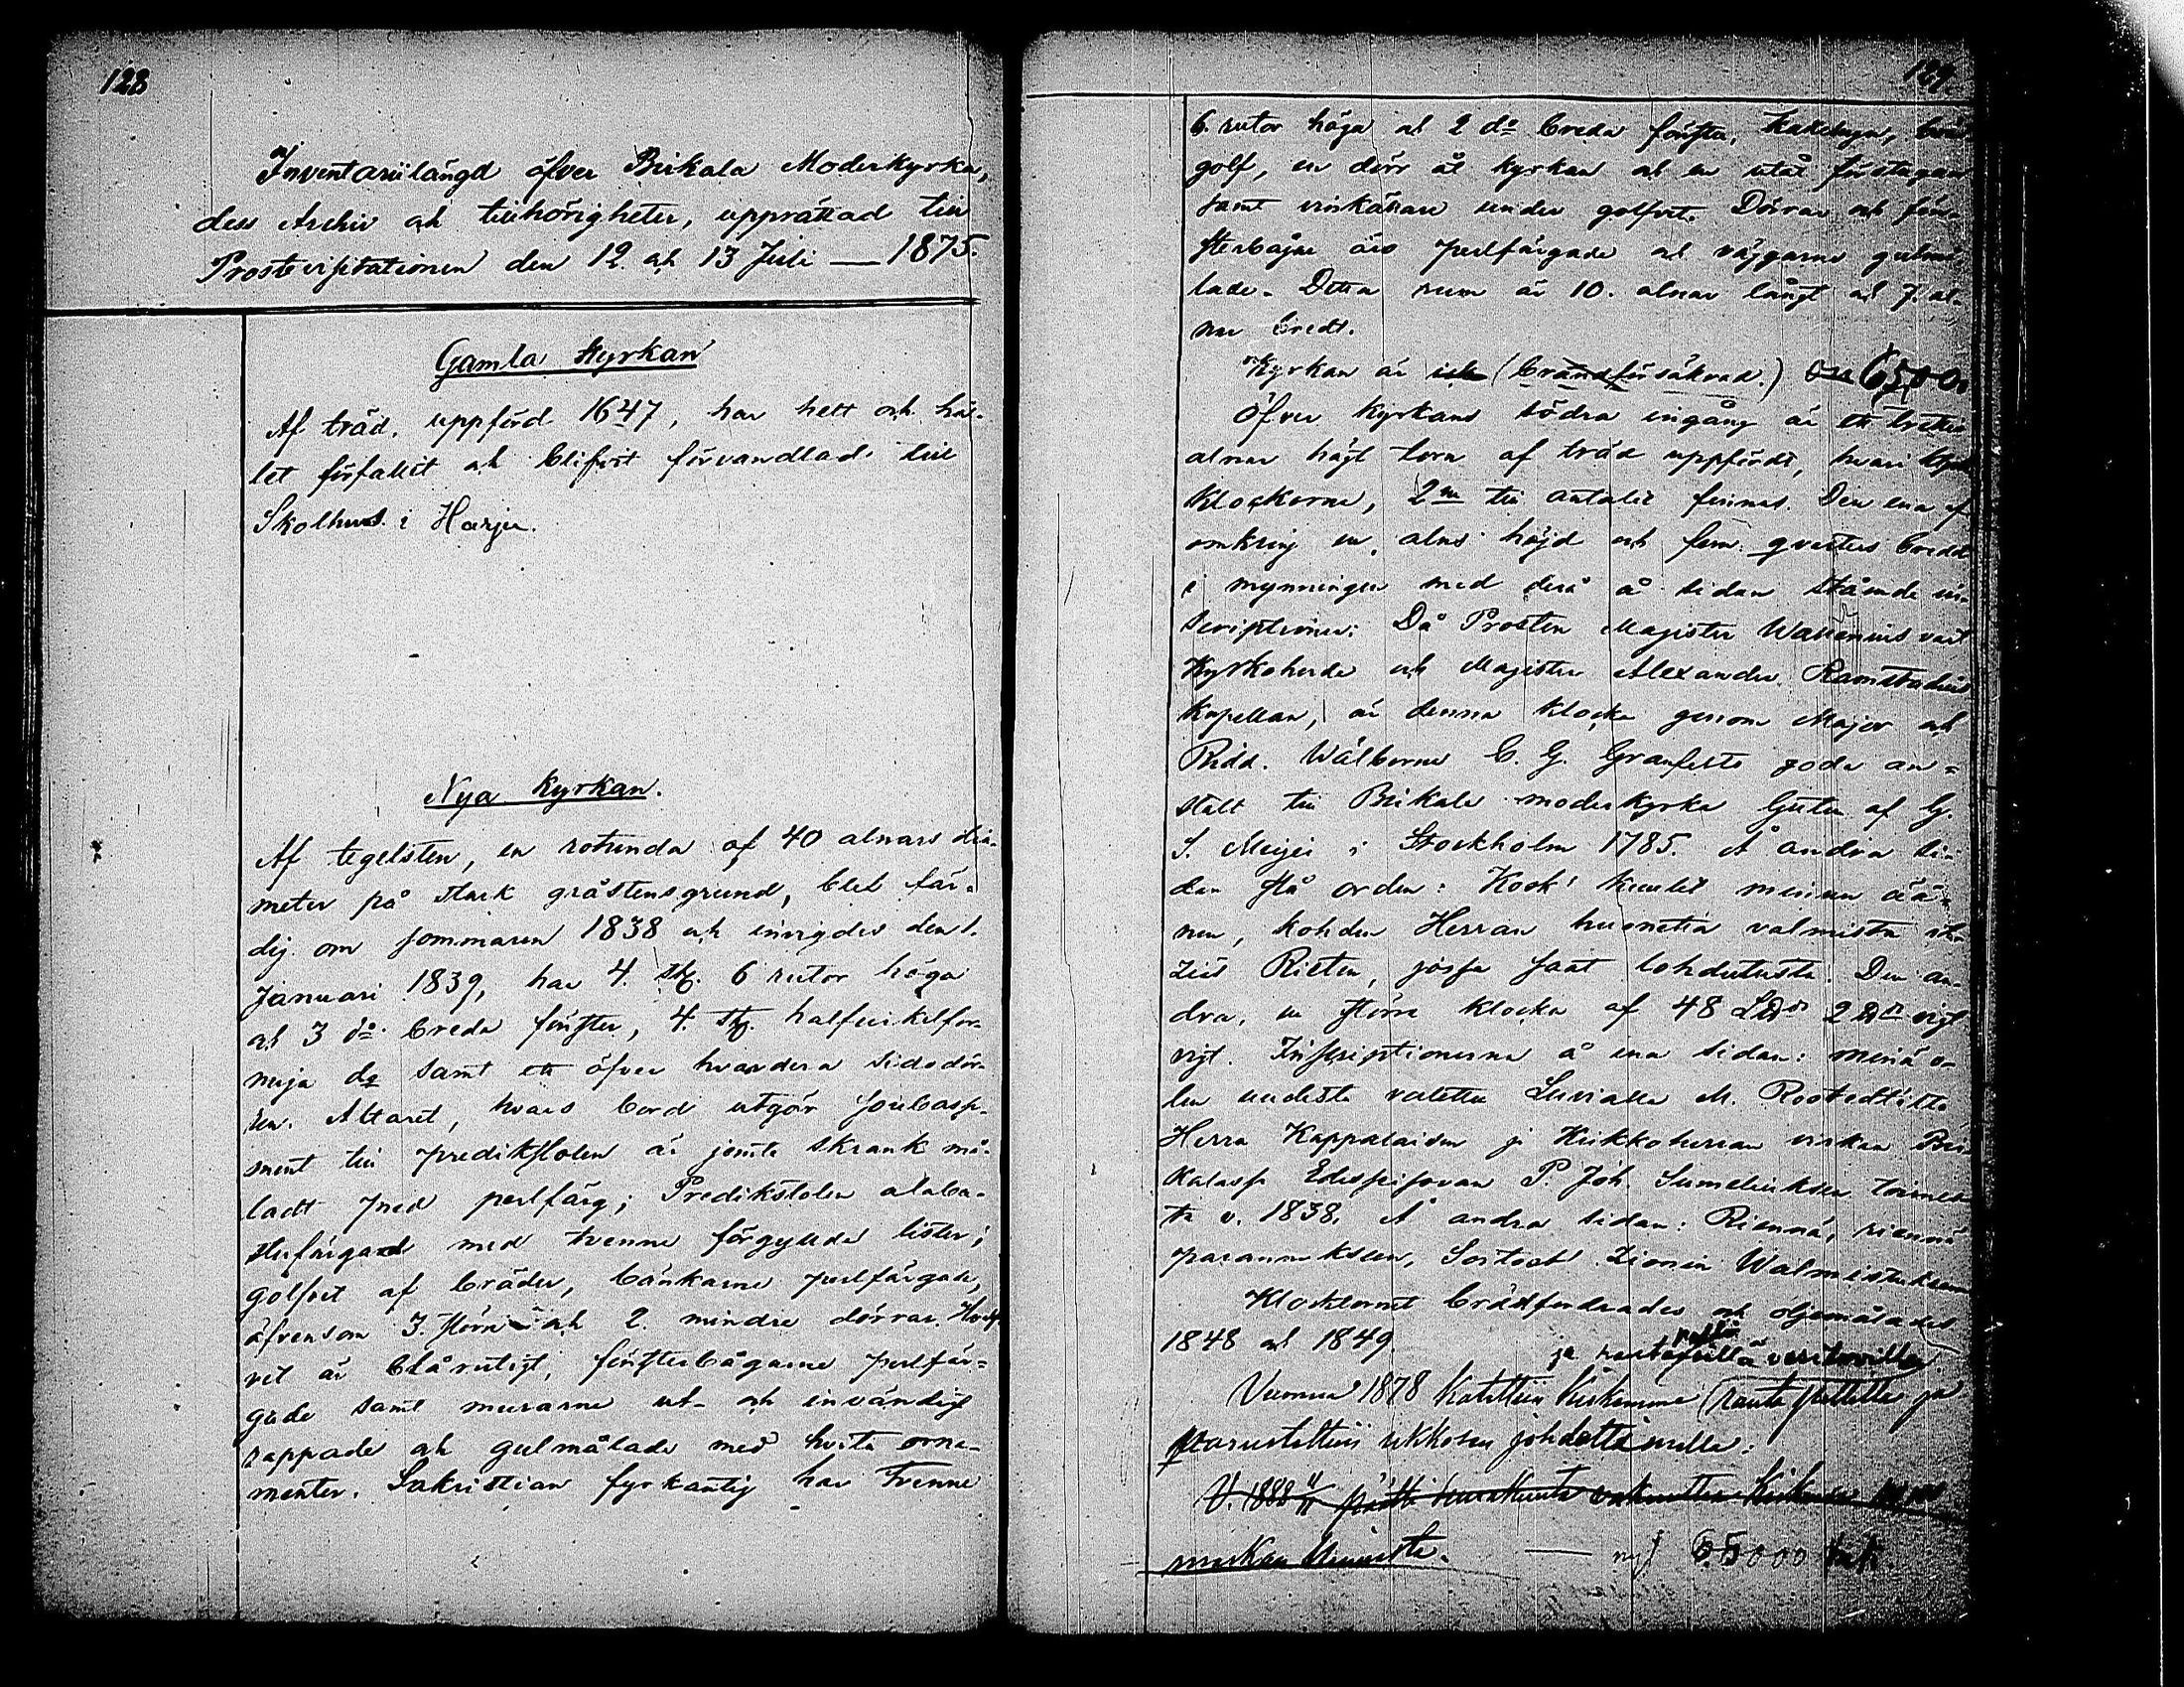 128
Inventariilängd öfver Birkala Moderkyrka,
dess Archiv och tillhörigheter, upprättad till
Prostevisitationen den 12. och 13 Juli — 1875.
Gamla Kyrkan
Af träd, uppförd 1647, har helt och hål-
let förfallit och blifvit förvandlad till
Skolhus i Harju.
Nya Kyrkan.
Af tegelsten, en rotunda af 40 alnars dia-
meter på stark gråstensgrund, blef fär-
dig om sommaren 1838 och invigdes den 1.
Januari 1839, har 4. st. 6 rutor höga
och 3 do breda fönster, 4. st. halfcirkelfor-
miga do samt ett öfver hvardera sidodör-
ren. Altaret, hvars bord utgör soubass-
ment till predikstolen är jemte skrank må-
ladt med perlfärg; Predikstolen alaba-
sterfärgad med tvenne förgyllda lister;
golfvet af bräder, bänkarne perlfärgade,
äfvensom 3. större och 2. mindre dörrar. Hvalf-
vet är blårutigt, fönsterbågarne perlfär-
gade samt murarne ut- och invändigt
rappade och gulmålade med hvita orna-
menter. Sakristian fyrkantig har trenne
129.
6. rutor höga och 2 do breda fönster, Kakelugn,
golf, en dörr åt kyrkan och en utåt förstugan
samt vinkällare under golfvet. Dörrar och fön-
sterbågar äro perlfärgade och väggarne gulmå-
lade. Detta rum är 10. alnar långt och 7. al-
nar bredt.
Kyrkan är icke (brandförsäkrad.) 65,000
Öfver Kyrkans södra ingång är ett tretton
alnar högt torn af träd uppfördt, hvari
Klockorna, 2ne till antalet finnas. Den ena af
omkring en alns höjd och fem qvarters bredd
i mynningen med derå å sidan stående in-
scriptioner: Då Prosten Magister Wallenius vart
Kyrkoherde och Magister Alexander Ramstadius
Kapellan, är denna Klocka genom Major och
Ridd. Wälborne C. G. Granfelts goda an-
stalt till Birkala moderkyrka Guten af G.
S. Meijer i Stockholm 1785. Å andra si-
dan stå orden: Koska kuulet minun ää-
nen, kohden Herran huonetta valmista
Zeis Rieten, jossa saat lohdutusta. Den an-
dra, en större klocka af 48 L℔ 2 ℔
vigt. Inscriptionerna å ena sidan: minä o-
len uudesta valettu Luvialla M. Rostedtiltä
Herra Kappalaisen ja Kirkkoherran viskan Bir-
kalassa Edesseisovan P. Joh. Sumeliuksen toimes-
ta v. 1838. Å andra sidan: Riennä, riennä
parannukseen, Soitost Zionin Walmistukseen
Klocktornet brädfordrades och oljemålades
1848 och 1849.
ja rautapellillä vesitorvilla
Vuonna 1878 Katettiin Kirkkomme (rauta pellillä ja
varustettiin ukkosen johdattimilla.
V. 1888 päätti kuurkunta vakuuttaa Kirkon
markan summasta. — 65000 mk.